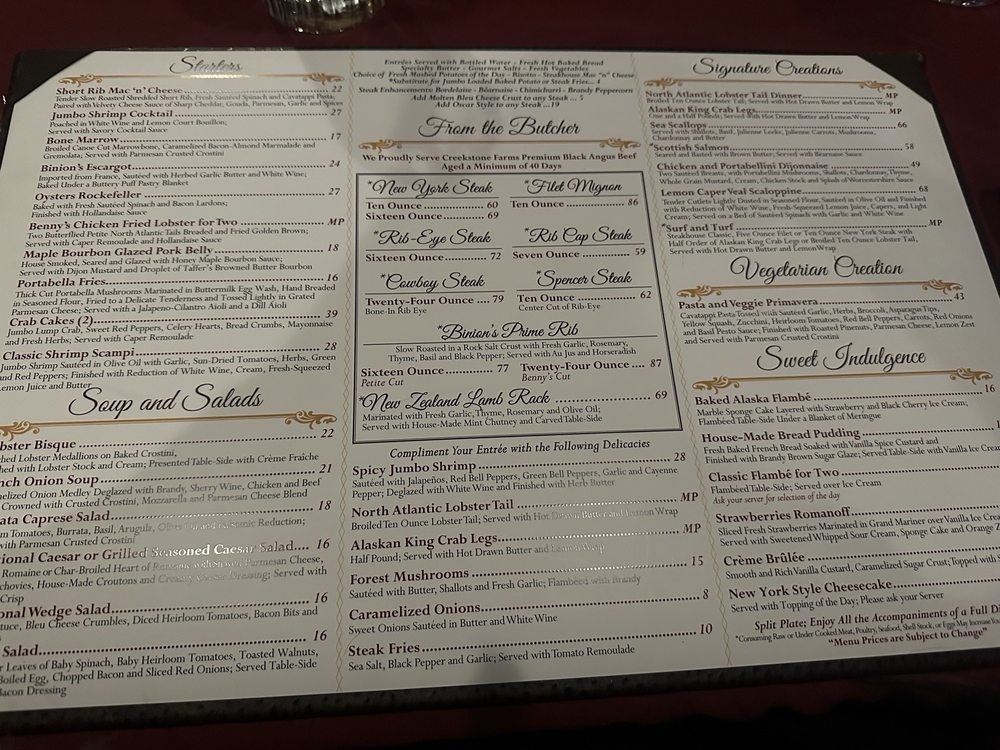 Starters
Short Rib Mac 'n' Cheese 22
Tender Slow Roasted Shredded Short Rib, Fresh Sautéed Spinach and Cavatappi Pasta,
Paired with Velvety Cheese Sauce of Sharp Cheddar, Gouda, Parmesan, Garlic and Spices
Jumbo Shrimp Cocktail 27
Poached in White Wine and Lemon Court Bouillon;
Served with Savory Cocktail Sauce
Bone Marrow 17
Broiled Canoe Cut Marrowbone, Caramelized Bacon-Almond Marmalade and
Gremolata; Served with Parmesan Crusted Crostini
Binion's Escargot 24
Imported from France, Sautéed with Herbed Garlic Butter and White Wine;
Baked Under a Buttery Puff Pastry Blanket
Oysters Rockefeller 27
Baked with Fresh Sautéed Spinach and Bacon Lardons;
Finished with Hollandaise Sauce
Benny's Chicken Fried Lobster for Two MP
Two Butterflied Petite North Atlantic Tails Breaded and Fried Golden Brown;
Served with Caper Remoulade and Hollandaise Sauce
Maple Bourbon Glazed Pork Belly 18
House Smoked, Seared and Glazed with Honey Maple Bourbon Sauce;
Served with Dijon Mustard and Droplet of Taffer's Browned Butter Bourbon
Portabella Fries 16
Thick Cut Portabella Mushrooms Marinated in Buttermilk Egg Wash, Hand Breaded
in Seasoned Flour, Fried to a Delicate Tenderness and Tossed Lightly in Grated
Parmesan Cheese; Served with a Jalapeño-Cilantro Aioli and a Dill Aioli
Crab Cakes (2) 39
Jumbo Lump Crab, Sweet Red Peppers, Celery Hearts, Bread Crumbs, Mayonnaise
and Fresh Herbs; Served with Caper Remoulade
Classic Shrimp Scampi 28
Jumbo Shrimp Sautéed in Olive Oil with Garlic, Sun-Dried Tomatoes, Herbs, Green
and Red Peppers; Finished with Reduction of White Wine, Cream, Fresh-Squeezed
Lemon Juice and Butter
Soup and Salads
bster Bisque 22
hed Lobster Medallions on Baked Crostini,
hed with Lobster Stock and Cream; Presented Table-Side with Crème Fraîche
nch Onion Soup 21
melized Onion Medley Deglazed with Brandy, Sherry Wine, Chicken and Beef
Crowned with Crusted Crostini, Mozzarella and Parmesan Cheese Blend
ata Caprese Salad 18
om Tomatoes, Burrata, Basil, Arugula, Olive Oil and Balsamic Reduction;
with Parmesan Crusted Crostini
tional Caesar or Grilled Seasoned Caesar Salad 16
Romaine or Char-Broiled Heart of Romaine with Shaved Parmesan Cheese,
chovies, House-Made Croutons and Creamy Caesar Dressing; Served with
Crisp
onal Wedge Salad 16
tuce, Bleu Cheese Crumbles, Diced Heirloom Tomatoes, Bacon Bits and
Salad 16
r Leaves of Baby Spinach, Baby Heirloom Tomatoes, Toasted Walnuts,
Boiled Egg, Chopped Bacon and Sliced Red Onions; Served Table-Side
Bacon Dressing
Entrées Served with Bottled Water - Fresh Hot Baked Bread
Specialty Butter - Gourmet Salts - Fresh Vegetables
Choice of Fresh Mashed Potatoes of the Day - Risotto - Steakhouse Mac "n" Cheese
*Substitute for Jumbo Loaded Baked Potato or Steak Fries... 4
Steak Enhancements: Bordelaise - Béarnaise - Chimichurri - Brandy Peppercorn
Add Molten Bleu Cheese Crust to any Steak ... 5
Add Oscar Style to any Steak ...19
From the Butcher
We Proudly Serve Creekstone Farms Premium Black Angus Beef
Aged a Minimum of 40 Days
*New York Steak
Ten Ounce 60
Sixteen Ounce 69
*Filet Mignon
Ten Ounce 86
*Rib-Eye Steak
Sixteen Ounce 72
*Rib Cap Steak
Seven Ounce 59
*Cowboy Steak
Twenty-Four Ounce 79
Bone-In Rib Eye
*Spencer Steak
Ten Ounce 62
Center Cut of Rib-Eye
*Binion's Prime Rib
Slow Roasted in a Rock Salt Crust with Fresh Garlic, Rosemary,
Thyme, Basil and Black Pepper; Served with Au Jus and Horseradish
Sixteen Ounce 77
Petite Cut
Twenty-Four Ounce 87
Benny's Cut
*New Zealand Lamb Rack 69
Marinated with Fresh Garlic, Thyme, Rosemary and Olive Oil;
Served with House-Made Mint Chutney and Carved Table-Side
Compliment Your Entrée with the Following Delicacies
Spicy Jumbo Shrimp 28
Sautéed with Jalapeños, Red Bell Peppers, Green Bell Peppers, Garlic and Cayenne
Pepper; Deglazed with White Wine and Finished with Herb Butter
North Atlantic Lobster Tail MP
Broiled Ten Ounce Lobster Tail; Served with Hot Drawn Butter and Lemon Wrap
Alaskan King Crab Legs MP
Half Pound; Served with Hot Drawn Butter and Lemon Wrap
Forest Mushrooms 15
Sautéed with Butter, Shallots and Fresh Garlic; Flambéed with Brandy
Caramelized Onions 8
Sweet Onions Sautéed in Butter and White Wine
Steak Fries 10
Sea Salt, Black Pepper and Garlic; Served with Tomato Remoulade
Signature Creations
North Atlantic Lobster Tail Dinner MP
Broiled Ten Ounce Lobster Tail; Served with Hot Drawn Butter and Lemon Wrap
Alaskan King Crab Legs MP
One and a Half Pounds; Served with Hot Drawn Butter and Lemon Wrap
Sea Scallops 66
Served with Shallots, Basil, Julienne Leeks, Julienne Carrots, Mushrooms,
Chardonnay and Butter
*Scottish Salmon 58
Seared and Basted with Brown Butter; Served with Béarnaise Sauce
Chicken and Portabellini Dijonnaise 49
Two Sautéed Breasts, with Portabellini Mushrooms, Shallots, Chardonnay, Thyme,
Whole Grain Mustard, Cream, Chicken Stock and Splash of Worcestershire Sauce
Lemon Caper Veal Scaloppine 68
Tender Cutlets Lightly Dusted in Seasoned Flour, Sautéed in Olive Oil and Finished
with Reduction of White Wine, Fresh-Squeezed Lemon Juice, Capers, and Light
Cream; Served on a Bed of Sautéed Spinach with Garlic and White Wine
*Surf and Turf MP
Steakhouse Classic, Five Ounce Filet or Ten Ounce New York Steak with
Half Order of Alaskan King Crab Legs or Broiled Ten Ounce Lobster Tail,
Served with Hot Drawn Butter and Lemon Wrap
Vegetarian Creation
Pasta and Veggie Primavera 43
Cavatappi Pasta Tossed with Sautéed Garlic, Herbs, Broccoli, Asparagus Tips,
Yellow Squash, Zucchini, Heirloom Tomatoes, Red Bell Peppers, Carrots, Red Onions
and Basil Pesto Sauce; Finished with Roasted Pinenuts, Parmesan Cheese, Lemon Zest
and Served with Parmesan Crusted Crostini
Sweet Indulgence
Baked Alaska Flambé 16
Marble Sponge Cake Layered with Strawberry and Black Cherry Ice Cream;
Flambéed Table-Side Under a Blanket of Meringue
House-Made Bread Pudding 1
Fresh Baked French Bread Soaked with Vanilla Spice Custard and
Finished with Brandy Brown Sugar Glaze; Served Table-Side with Vanilla Ice Crea
Classic Flambé for Two
Flambéed Table-Side; Served over Ice Cream
Ask your server for selection of the day
Strawberries Romanoff
Sliced Fresh Strawberries Marinated in Grand Mariner over Vanilla Ice Crea
Served with Sweetened Whipped Sour Cream, Sponge Cake and Orange Z
Crème Brûlée
Smooth and Rich Vanilla Custard, Caramelized Sugar Crust; Topped with S
New York Style Cheesecake
Served with Topping of the Day; Please ask your Server
Split Plate; Enjoy All the Accompaniments of a Full Di
*Consuming Raw or Under Cooked Meat, Poultry, Seafood, Shell Stock, or Eggs May Increase You
"Menu Prices are Subject to Change"